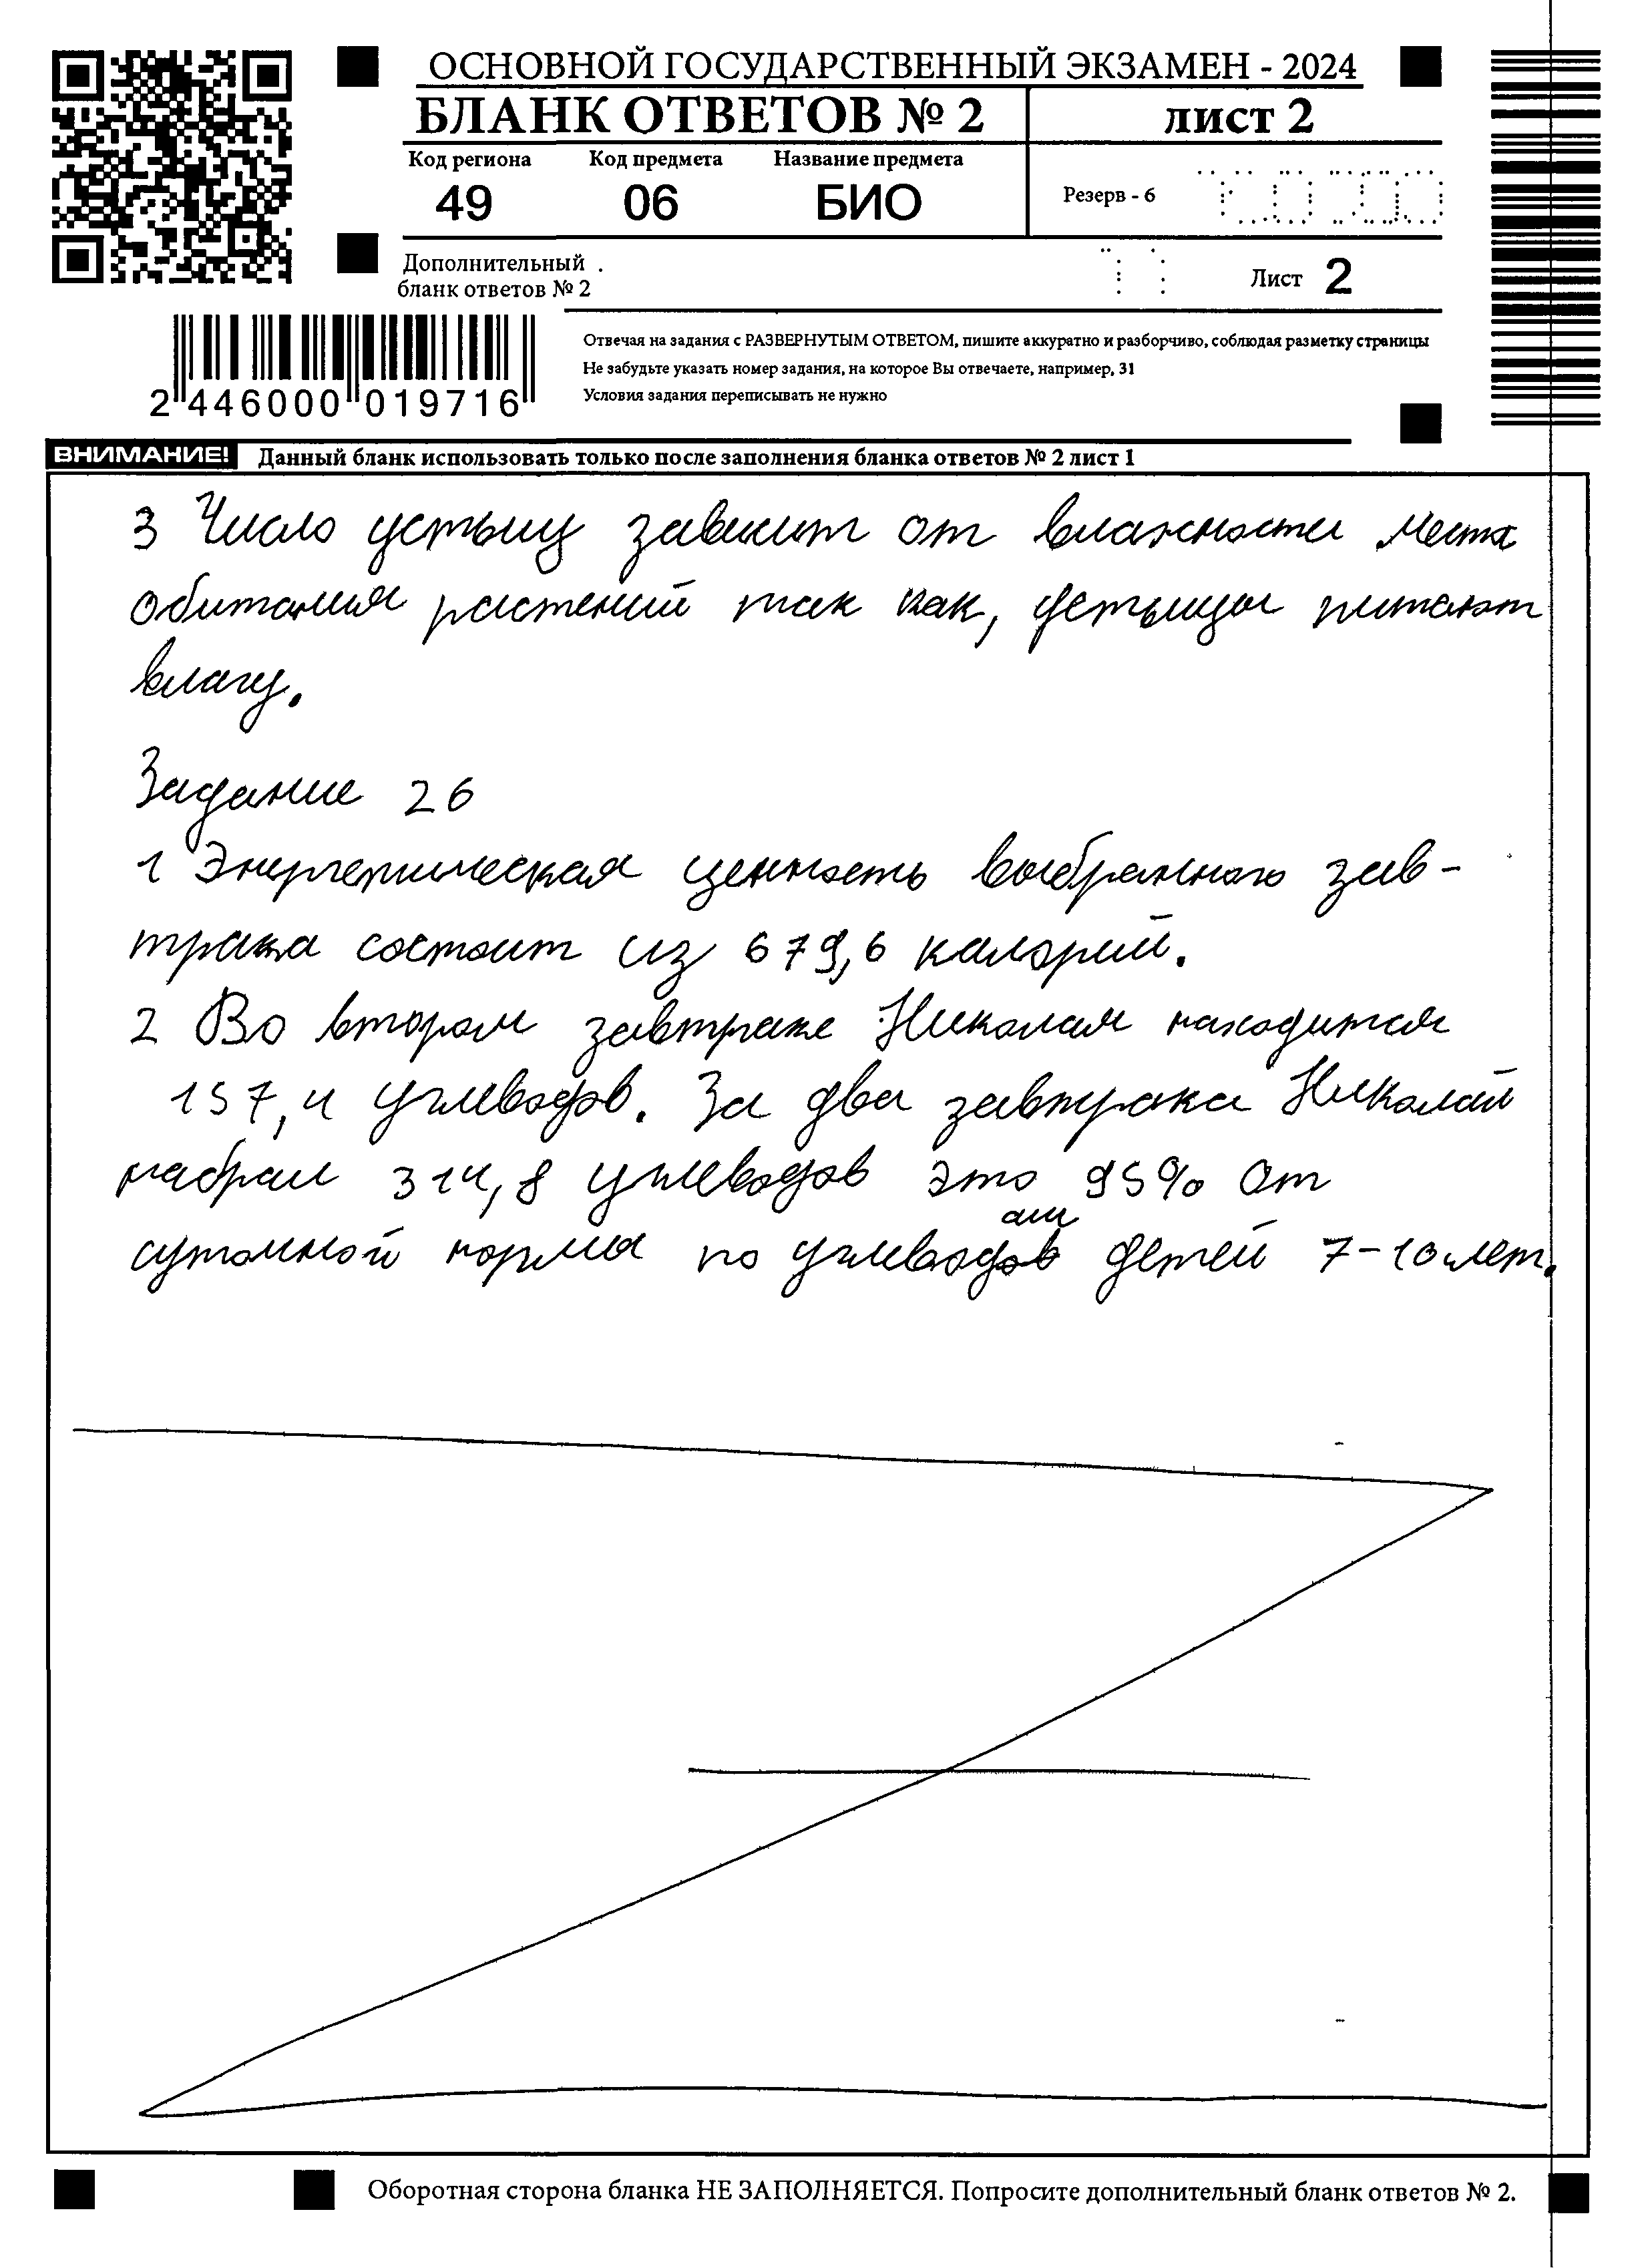 ОСНОВНОЙ ГОСУДАРСТВЕННЫЙ ЭКЗАМЕН - 2024
БЛАНК ОТВЕТОВ № 2
лист 2
Код региона
Код предмета
Название предмета
49
06
БИО
Резерв - 6
Дополнительный
бланк ответов № 2
Лист 2
2 446000 019716
Отвечая на задания с РАЗВЕРНУТЫМ ОТВЕТОМ, пишите аккуратно и разборчиво, соблюдая разметку страницы
Не забудьте указать номер задания, на которое Вы отвечаете, например, 31
Условия задания переписывать не нужно
ВНИМАНИЕ! Данный бланк использовать только после заполнения бланка ответов № 2 лист 1
3 Число устьиц зависит от влажности места
обитания растений так как, устьицы питают
влагу.
Задание 26
1 Энергетическая ценность выбранного зав-
трака состоит из 679,6 калорий.
2 Во втором завтраке Николая находится
157,4 углеводов. За два завтрака Николай
набрал 314,8 углеводов это 95% от
сутомной нормы по углеводам детей 7-10 лет.
Оборотная сторона бланка НЕ ЗАПОЛНЯЕТСЯ. Попросите дополнительный бланк ответов № 2.